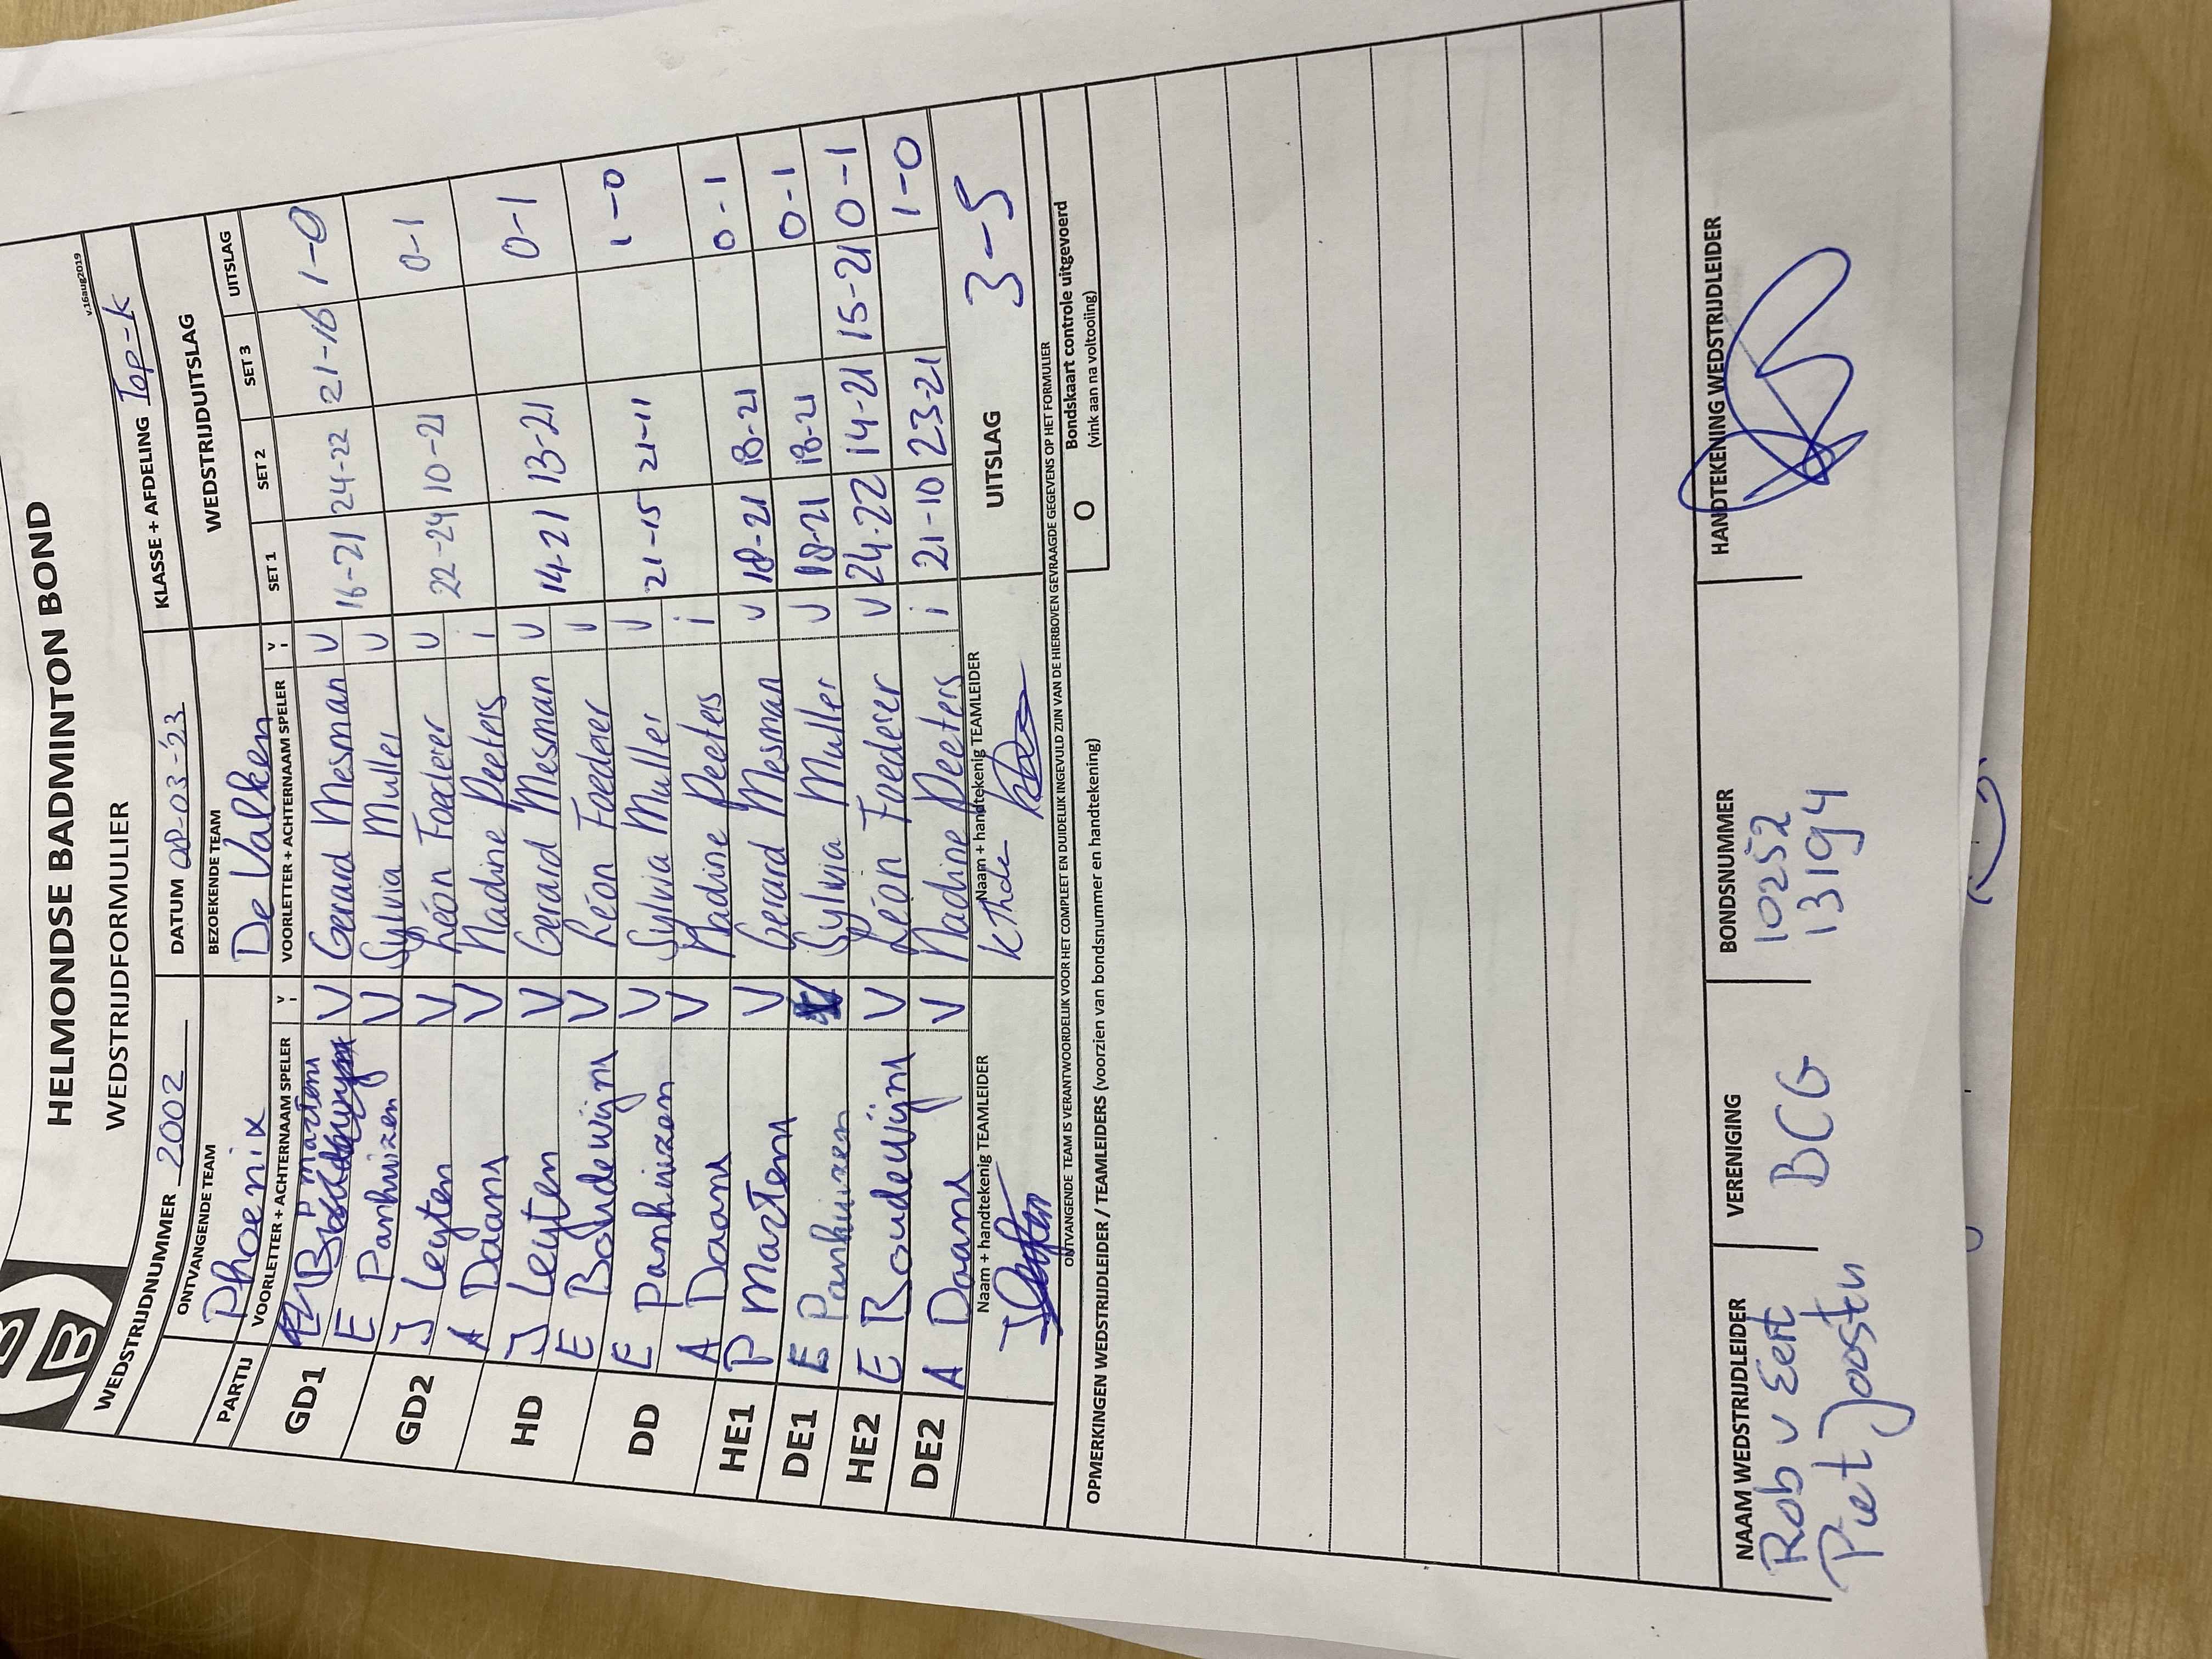 HELMONDSE BADMINTON BOND
v.16aug2019
WEDSTRIJDFORMULIER
WEDSTRIJDNUMMER 2002 DATUM 08-03-'23 KLASSE + AFDELING Top-k
ONTVANGENDE TEAM BEZOEKENDE TEAM WEDSTRIJDUITSLAG
Phoenix De Valken
PARTIJ VOORLETTER + ACHTERNAAM SPELER V i VOORLETTER + ACHTERNAAM SPELER V i SET 1 SET 2 SET 3 UITSLAG
GD1 P Martens V Gerard Mesman V 16-21 24-22 21-16 1-0
E Panhuizen V Sylvia Muller V
GD2 J Leyten V Léon Foederer V 22-24 10-21 0-1
A Daans V Nadine Peeters i
HD J Leyten V Gerard Mesman V 14-21 13-21 0-1
E Boudewijns V Léon Foederer V
DD E Panhuizen V Sylvia Muller V 21-15 21-11 1-0
A Daans V Nadine Peeters i
HE1 P Martens V Gerard Mesman V 18-21 18-21 0-1
DE1 E Panhuizen V Sylvia Muller V 18-21 18-21 0-1
HE2 E Boudewijns V Léon Foederer V 24-22 14-21 15-21 0-1
DE2 A Daans V Nadine Peeters i 21-10 23-21 1-0
Naam + handtekenig TEAMLEIDER Naam + handtekenig TEAMLEIDER UITSLAG 3-5
J Leyten
ONTVANGENDE TEAM IS VERANTWOORDELIJK VOOR HET COMPLEET EN DUIDELIJK INGEVULD ZIJN VAN DE HIERBOVEN GEVRAAGDE GEGEVENS OP HET FORMULIER
OPMERKINGEN WEDSTRIJDLEIDER / TEAMLEIDERS (voorzien van bondsnummer en handtekening) O Bondskaart controle uitgevoerd
(vink aan na voltooiing)
NAAM WEDSTRIJDLEIDER VERENIGING BONDSNUMMER HANDTEKENING WEDSTRIJDLEIDER
Rob v Eert BCG 10252
Piet Joosten 13194